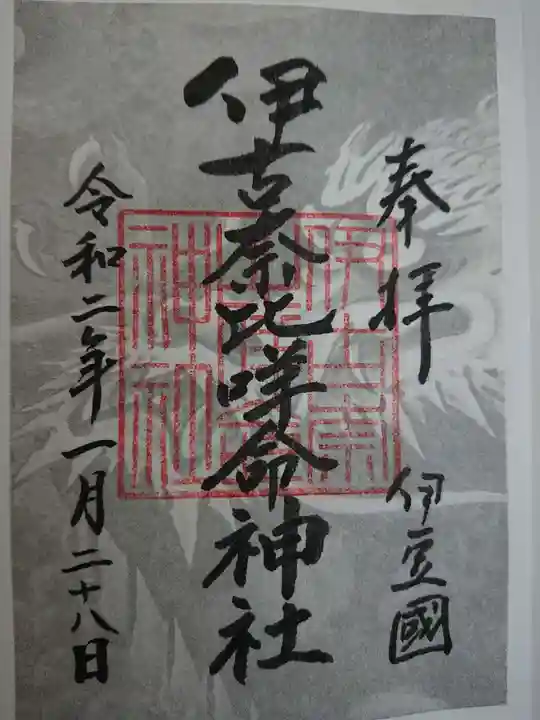 奉拝
伊豆國
伊古奈比咩命神社
令和二年一月二十八日
伊古奈
比咩命
神社